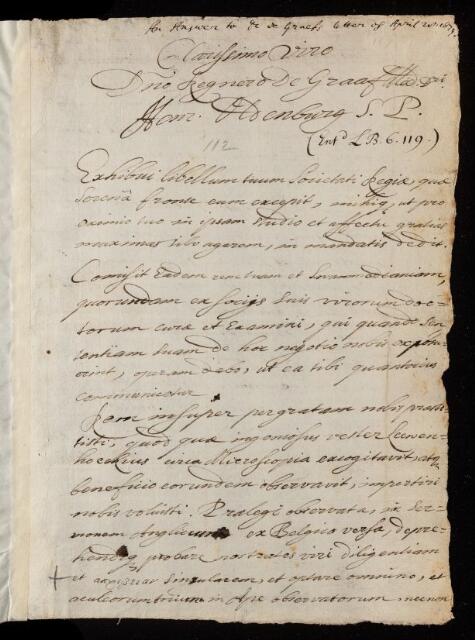 An Answer to Dr de Graefs letter of April 28. 1673.
Clarissimo Viro
Dno Regnero De Graaf Med. Dri.
Henr. Oldenburg S. P.
(Entd L.B. 6. 119.)
112
Exhibui libellum tuum Societati Regiæ, quæ
serenâ fronte eum excepit, mihiq, ut pro
eximio tuo in ipsam studio et affectu gratias
maximas tibi agerem, in mandatis dedit.
Comisit Eadem rem tuam et Swammerdamiam,
quorundam ex Socijs suis virorum doc-
torum curæ et Examini, qui quando Sen
tentiam suam de hoc negotio nobis exposu
erint, operam dabo, ut ea tibi quantocius
communicetur.
Rem insuper pergratam nobis præsti
tisti, quod quæ ingeniosus vester Leewen-
hoeckius circa Microscopia excogitavit, atq
beneficio eorundem observavit, impertiri
nobis voluisti. Prælegi observata, in Ser-
monem Anglicum ex Belgico versa, depre-
hendoq probare nostrates viri diligentiam
et singularem, et optare omnino, et
aculeorum trium in Ape observatorum, necnon